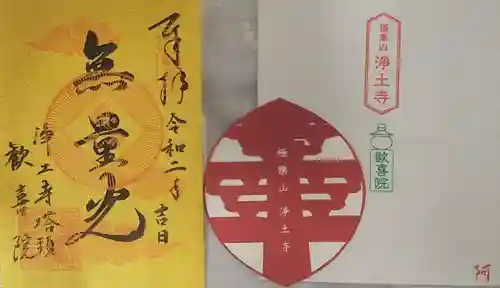 奉拝
令和二年
吉日
無量光
浄土寺塔頭
歓喜院
極楽山 浄土寺
極楽山
浄土寺
歓喜院
阿